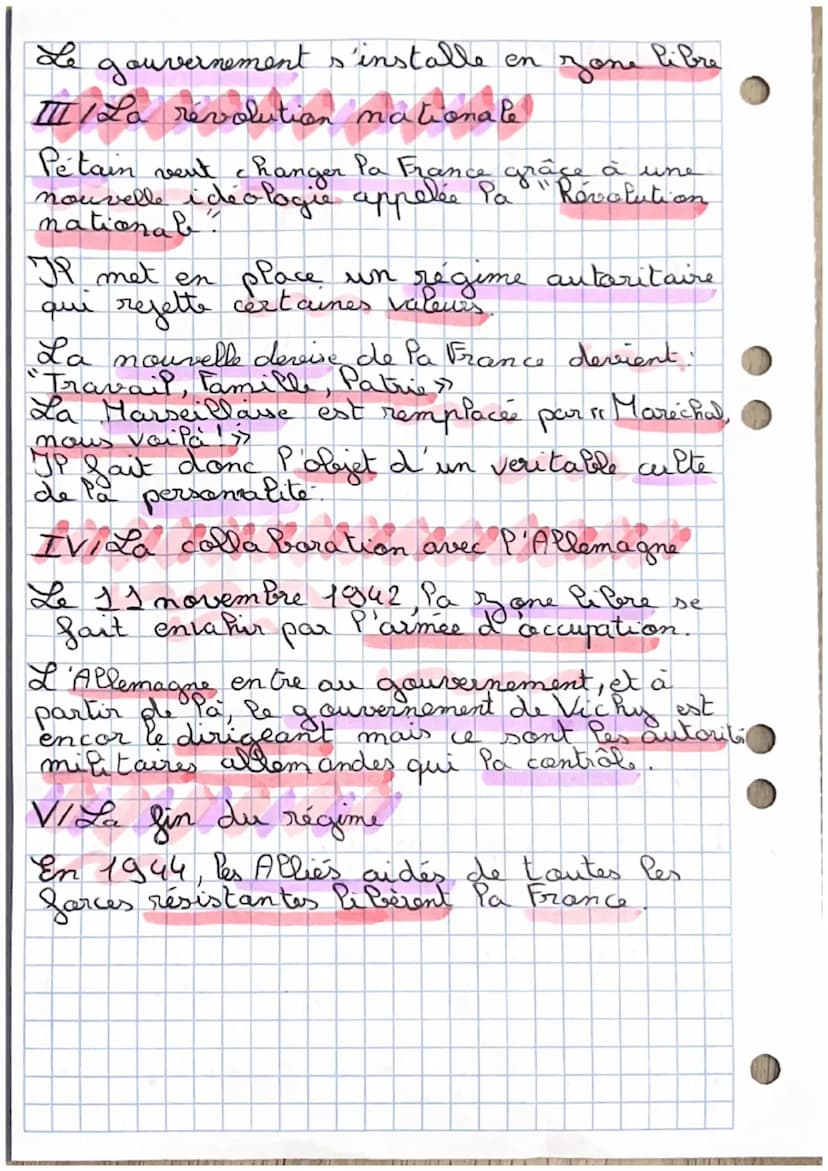 Le gouvernement s'installe en zone libre
III/La révolution nationale
Pétain veut changer la France grâce à une
nouvelle idéologie appelée la "Révolution
nationale".
Il met en place un régime autoritaire
qui rejette certaines valeurs.
La nouvelle devise de la France devient:
"Travail, Famille, Patrie »
La Marseillaise est remplacée par « Maréchal,
nous voilà ! »
Il fait donc l'objet d'un veritable culte
de la personnalité.
IV/La collaboration avec l'Allemagne
Le 11 novembre 1942, la zone libre se
fait envahir par l'armée d'occupation.
L'Allemagne entre au gouvernement, et à
partir de là, le gouvernement de Vichy est
encor le dirigeant mais ce sont les autorités
militaires allemandes qui la contrôle.
V/La fin du régime
En 1944, les Alliés aidés de toutes les
forces résistantes libèrent la France.